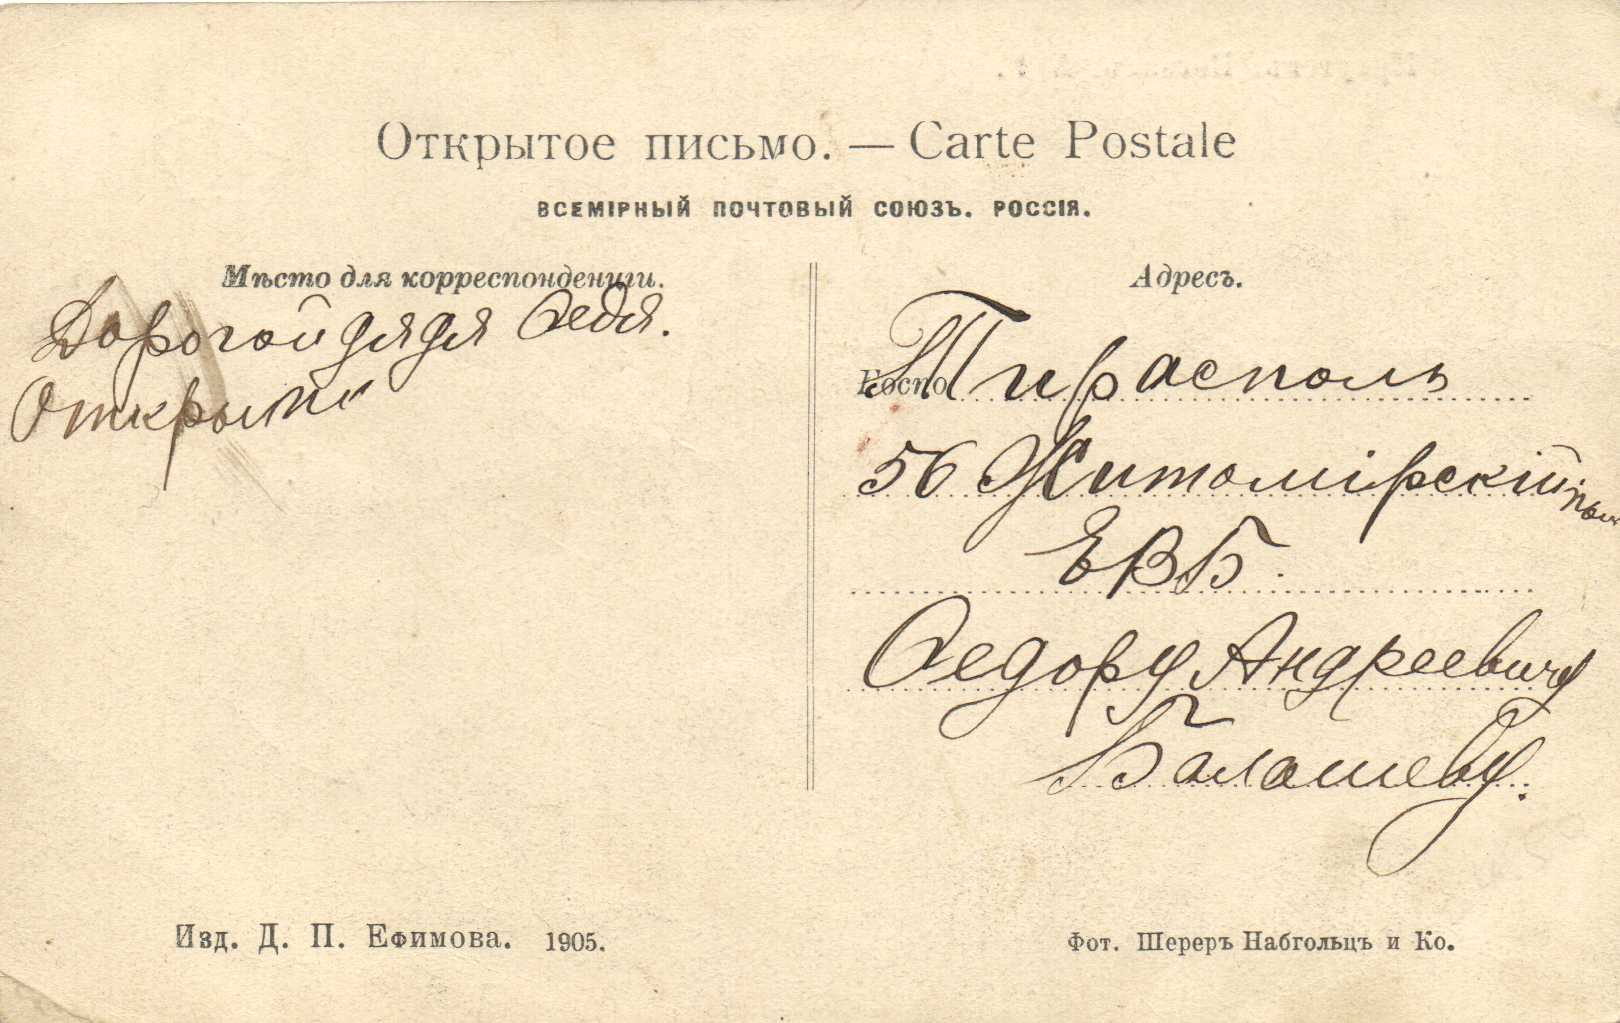 Открытое письмо. — Carte Postale
ВСЕМІРНЫЙ ПОЧТОВЫЙ СОЮЗЪ. РОССІЯ.
Мѣсто для корреспонденціи.
Дорогой дядя Федя.
Открытки
Адресъ.
Тирасполь
56 Житомірскій полк
ЕВБ.
Федору Андреевичу
Балашеву.
Изд. Д. П. Ефимова. 1905.
Фот. Шереръ Набгольцъ и Ко.